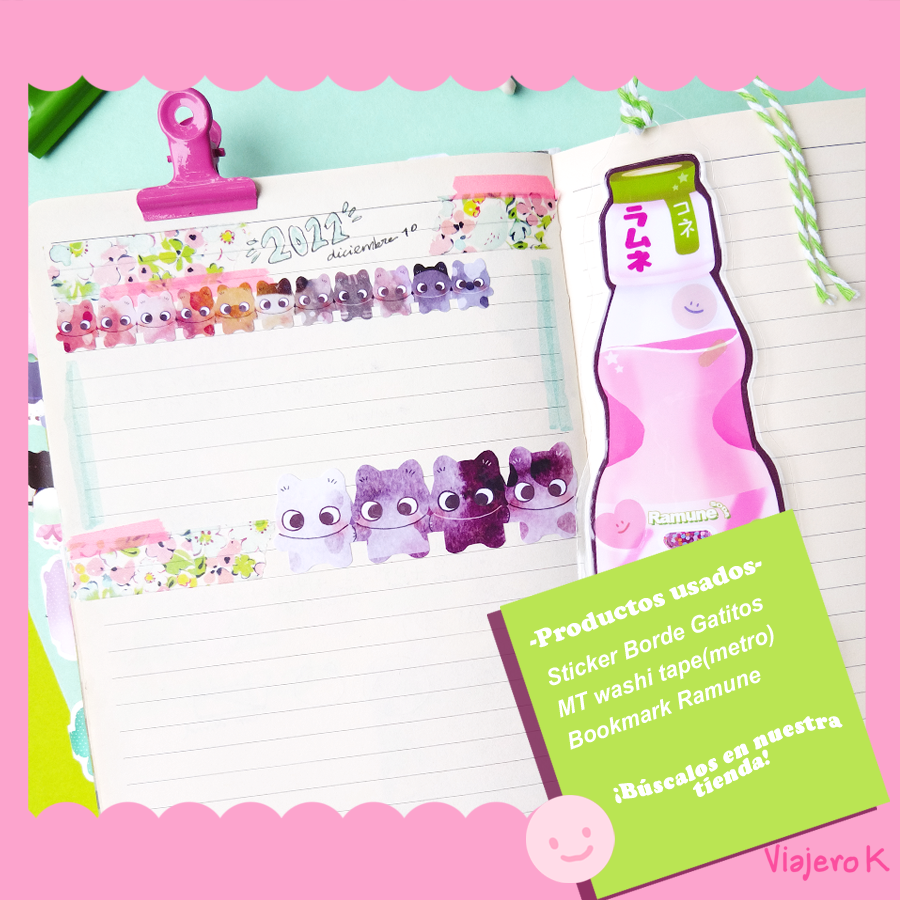 2022
diciembre 10
ラムネ
コネ
Ramune
-Productos usados-
Sticker Borde Gatitos
MT washi tape(metro)
Bookmark Ramune
¡Búscalos en nuestra
tienda!
Viajero K